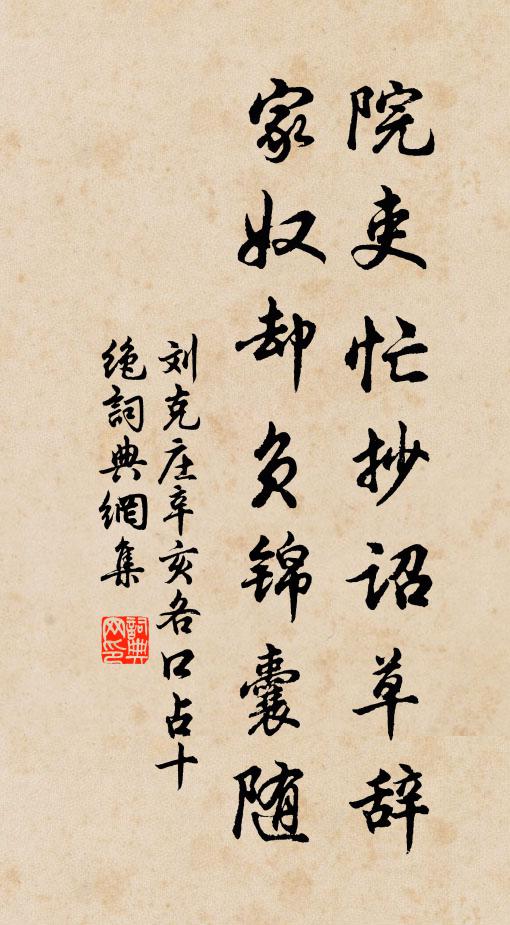 院吏忙抄诏草辞
家奴却负锦囊随
刘克庄辛亥各口占十
绝詞典網集
詞典网印